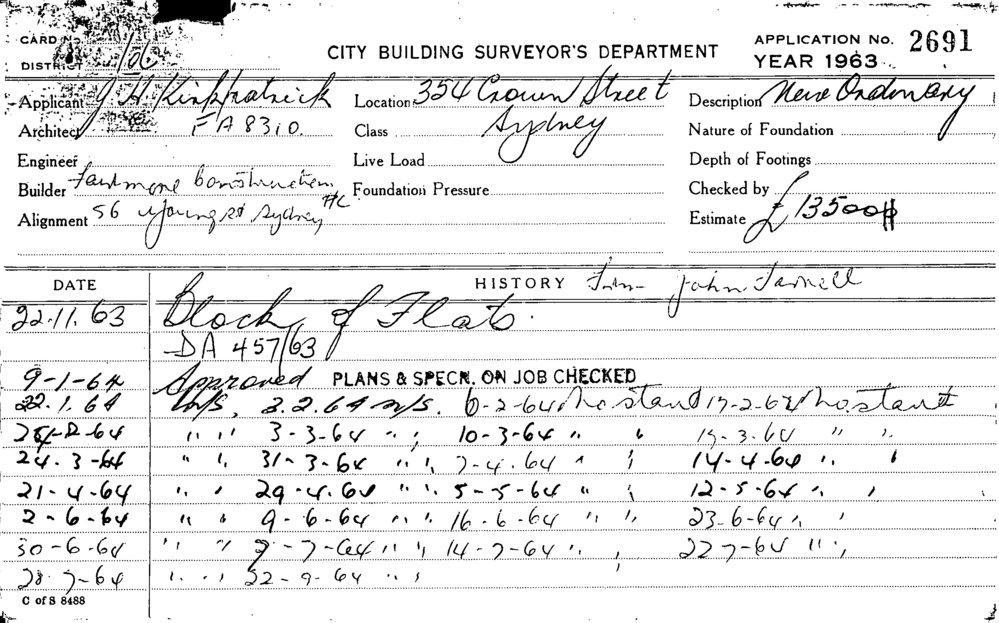 CARD No.
DISTRICT 106
CITY BUILDING SURVEYOR'S DEPARTMENT
APPLICATION No. 2691
YEAR 1963
Applicant J. H. Kirkpatrick Location 354 Crown Street Description New Ordinary
Architect FA 8310. Class Sydney Nature of Foundation
Engineer Live Load Depth of Footings
Builder Construction P/L Foundation Pressure Checked by
Alignment 56 Young St Sydney Estimate £135000
DATE HISTORY John Farrell
22.11.63 Block of Flats.
DA 457/63
9-1-64 Approved PLANS & SPECN. ON JOB CHECKED
22.1.64 N/S. 3.2.64 N/S. -2-64 No start 17-2-64 No start
-2-64 " " 3-3-64 " " 10-3-64 " " -3-64 " "
24-3-64 " " 31-3-64 " " 7-4-64 " " 14-4-64 " "
21-4-64 " " 29-4-64 " " 5-5-64 " " 12-5-64 " "
2-6-64 " " 9-6-64 " " 16-6-64 " " 23-6-64 " "
30-6-64 " " 7-64 " " 14-7-64 " " 22 7-64 " "
28-7-64 " " 22-9-64 " "
C of S 8488